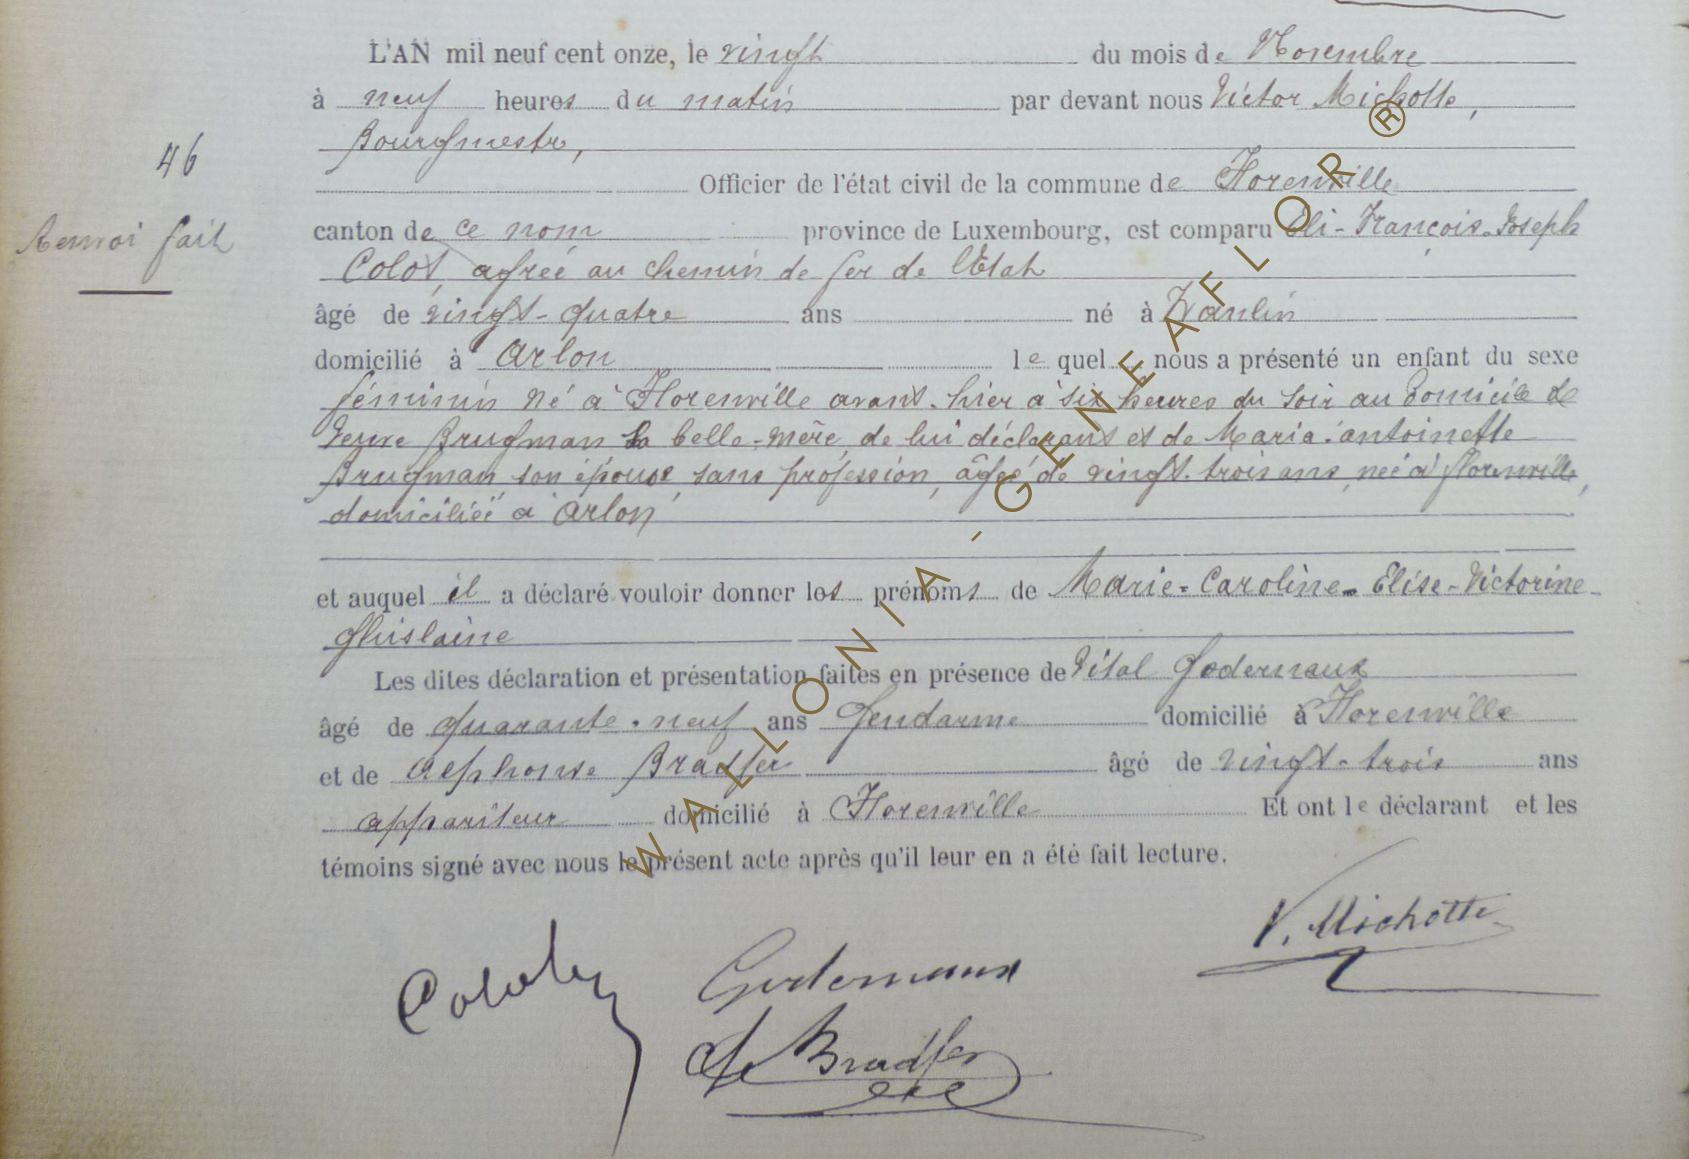 L'AN mil neuf cent onze, le vingt du mois de Novembre
à neuf heures du matin par devant nous Victor Michotte,
Bourgmestre,
46
Officier de l'état civil de la commune de Florenville
Renvoi fait
canton de ce nom province de Luxembourg, est comparu Eli-François-Joseph
Colot, agréé au chemin de fer de l'Etat
âgé de vingt-quatre ans né à Wanlin
domicilié à Arlon lequel nous a présenté un enfant du sexe
féminin né à Florenville avant-hier à six heures du soir au domicile de
Veuve Brugman sa belle-mère, de lui déclarant et de Maria-Antoinette
Brugman, son épouse, sans profession, âgée de vingt-trois ans, née à Florenville,
domiciliée à Arlon
et auquel il a déclaré vouloir donner les prénoms de Marie-Caroline-Elise-Victorine-
Ghislaine
Les dites déclaration et présentation faites en présence de Vital Godernaux
âgé de quarante-neuf ans Gendarme domicilié à Florenville
et de Alphonse Bradfer âgé de vingt-trois ans
appariteur domicilié à Florenville Et ont le déclarant et les
témoins signé avec nous le présent acte après qu'il leur en a été fait lecture.
V. Michotte
Colot
Godernaux
Bradfer
WALLONIA-GENEAFLOR®